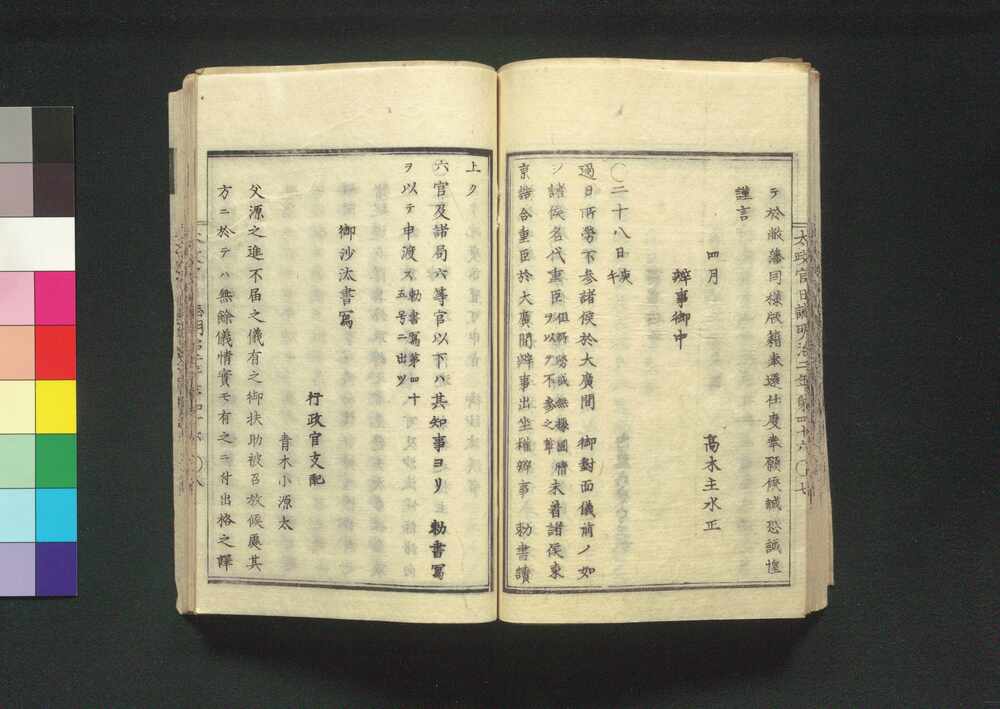 太政官日誌明治二年第四十六 〇七
テ於敝藩同様版籍奉還仕度奉願候誠恐誠惶
謹言
四月
高木主水正
辨事御中
〇二十八日庚午
過日所勞不参諸侯於大廣間 御對面儀前ノ如
シ諸侯名代重臣
ヲ以テ不参之輩
未着諸侯東
京詰合重臣於大廣間辨事出坐権辨事 勅書讀
上ク
六官及諸局六等官以下ハ其知事ヨリ 勅書寫
ヲ以テ申渡ス勅書寫第四十
五号ニ出ツ
御沙汰書寫
行政官支配
青木小源太
父源之進不届之儀有之御扶助被召放候處其
方ニ於テハ無餘儀情實モ有之ニ付出格之譯